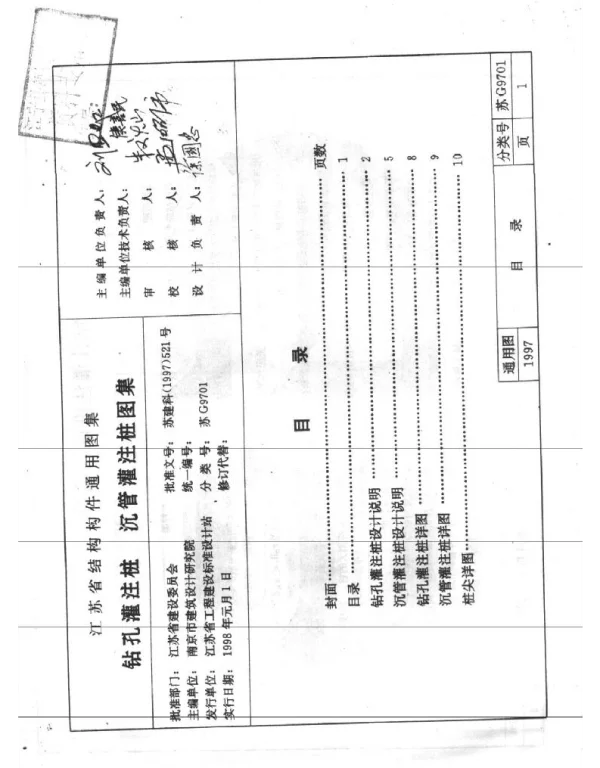 江苏省结构构件通用图集
钻孔灌注桩 沉管灌注桩图集
批准部门：江苏省建设委员会 批准文号：苏建科(1997)521号
主编单位：南京市建筑设计研究院 统一编号：
发行单位：江苏省工程建设标准设计站 分类号：苏G9701
实行日期：1998年元月1日 修订代替：
主编单位负责人：
主编单位技术负责人：
审核人：
校核人：
设计负责人：徐国忠
目 录
页数
封面
目录 1
钻孔灌注桩设计说明 2
沉管灌注桩设计说明 5
钻孔灌注桩详图 8
沉管灌注桩详图 9
桩尖详图 10
通用图 目 录 分类号 苏G9701
1997 页 1